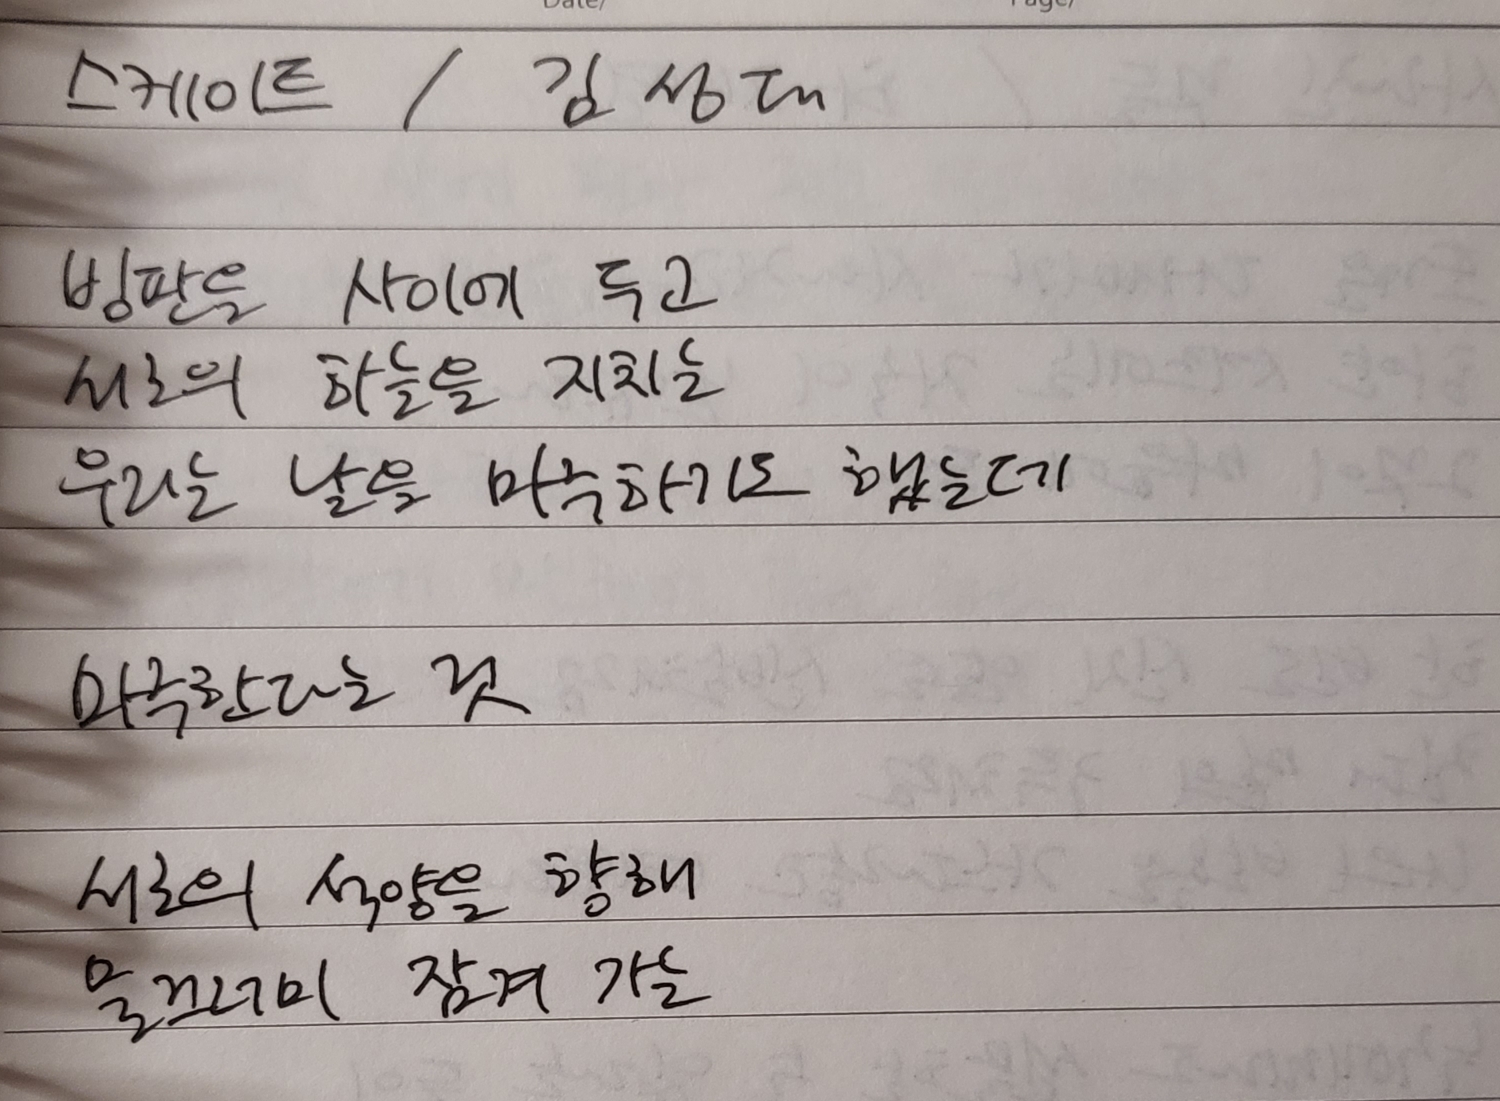 Date/ Page/
스케이트 / 김성대
빙판을 사이에 두고
서로의 하늘을 지치는
우리는 날을 마주하기도 했는데
마주한다는 것
서로의 석양을 향해
물끄러미 잠겨 가는